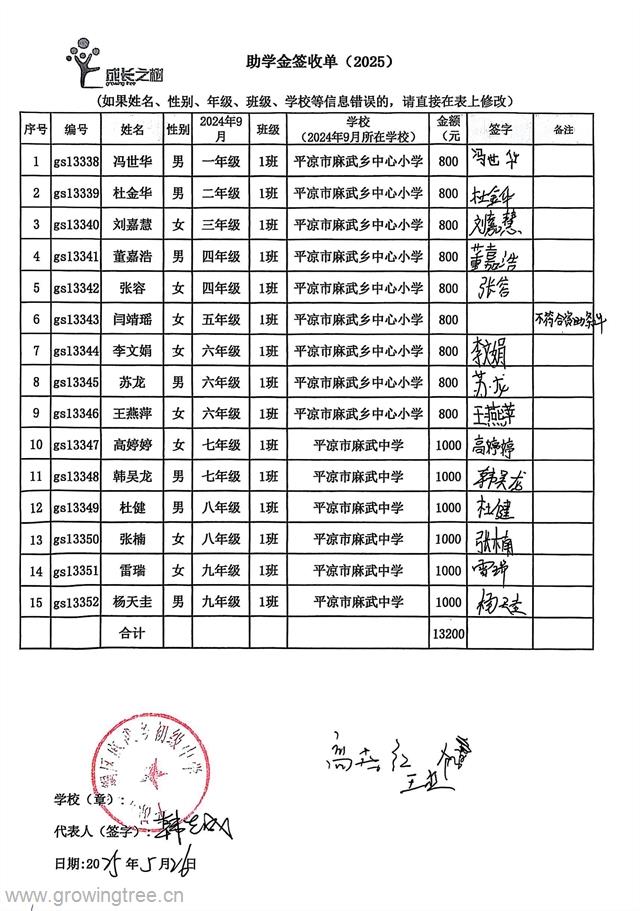 成长之树
growing tree
助学金签收单（2025）
(如果姓名、性别、年级、班级、学校等信息错误的，请直接在表上修改)
序号 编号 姓名 性别 2024年9月 班级 学校（2024年9月所在学校） 金额（元 签字 备注
1 gs13338 冯世华 男 一年级 1班 平凉市麻武乡中心小学 800 冯世华
2 gs13339 杜金华 男 二年级 1班 平凉市麻武乡中心小学 800 杜金华
3 gs13340 刘嘉慧 女 三年级 1班 平凉市麻武乡中心小学 800 刘嘉慧
4 gs13341 董嘉浩 男 四年级 1班 平凉市麻武乡中心小学 800 董嘉浩
5 gs13342 张容 女 四年级 1班 平凉市麻武乡中心小学 800 张容
6 gs13343 闫靖瑶 女 五年级 1班 平凉市麻武乡中心小学 800 不符合资助条件
7 gs13344 李文娟 女 六年级 1班 平凉市麻武乡中心小学 800 李文娟
8 gs13345 苏龙 男 六年级 1班 平凉市麻武乡中心小学 800 苏龙
9 gs13346 王燕萍 女 六年级 1班 平凉市麻武乡中心小学 800 王燕萍
10 gs13347 高婷婷 女 七年级 1班 平凉市麻武中学 1000 高婷婷
11 gs13348 韩吴龙 男 七年级 1班 平凉市麻武中学 1000 韩吴龙
12 gs13349 杜健 男 八年级 1班 平凉市麻武中学 1000 杜健
13 gs13350 张楠 女 八年级 1班 平凉市麻武中学 1000 张楠
14 gs13351 雷瑞 女 九年级 1班 平凉市麻武中学 1000 雷瑞
15 gs13352 杨天圭 男 九年级 1班 平凉市麻武中学 1000 杨天圭
合计 13200
乡初级中学
学校（章）:
代表人（签字）:
日期:2025年5月26日
www.growingtree.cn